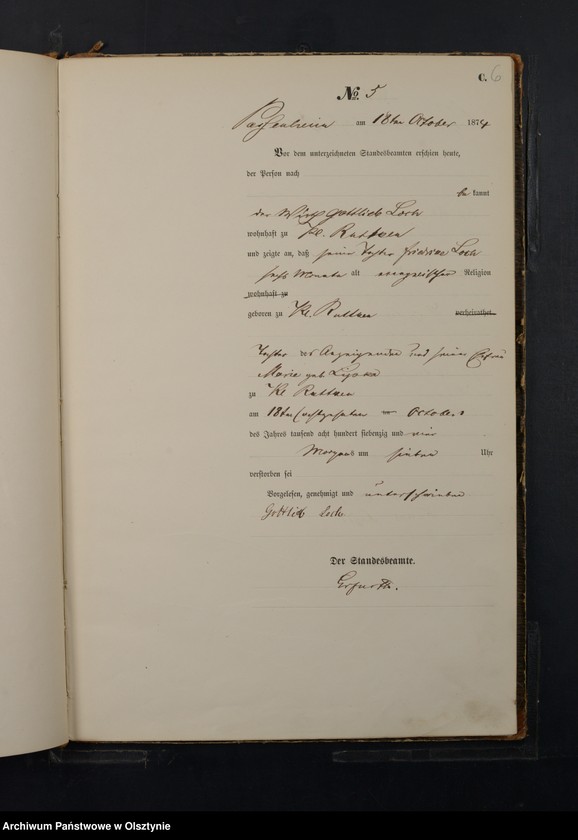 C. 6
No. 5
Passenheim am 18ten October 1874
Vor dem unterzeichneten Standesbeamten erschien heute,
der Person nach
bekannt
der Wirth Gottlieb Loch
wohnhaft zu Kl. Rattzen
und zeigte an, daß seine Tochter Friederike Loch
sechs Monate alt evangelischer Religion
wohnhaft zu
geboren zu Kl. Rattzen verheirathet
Tochter des Anzeigenden und seiner Ehefrau
Marie geb
zu Kl Rattzen
am 18ten (achtzehnten October
des Jahres tausend acht hundert siebenzig und vier
Morgens um sieben Uhr
verstorben sei
Vorgelesen, genehmigt und unterschrieben
Gottlieb Loch
Der Standesbeamte.
Erfurth.
Archiwum Państwowe w Olsztynie